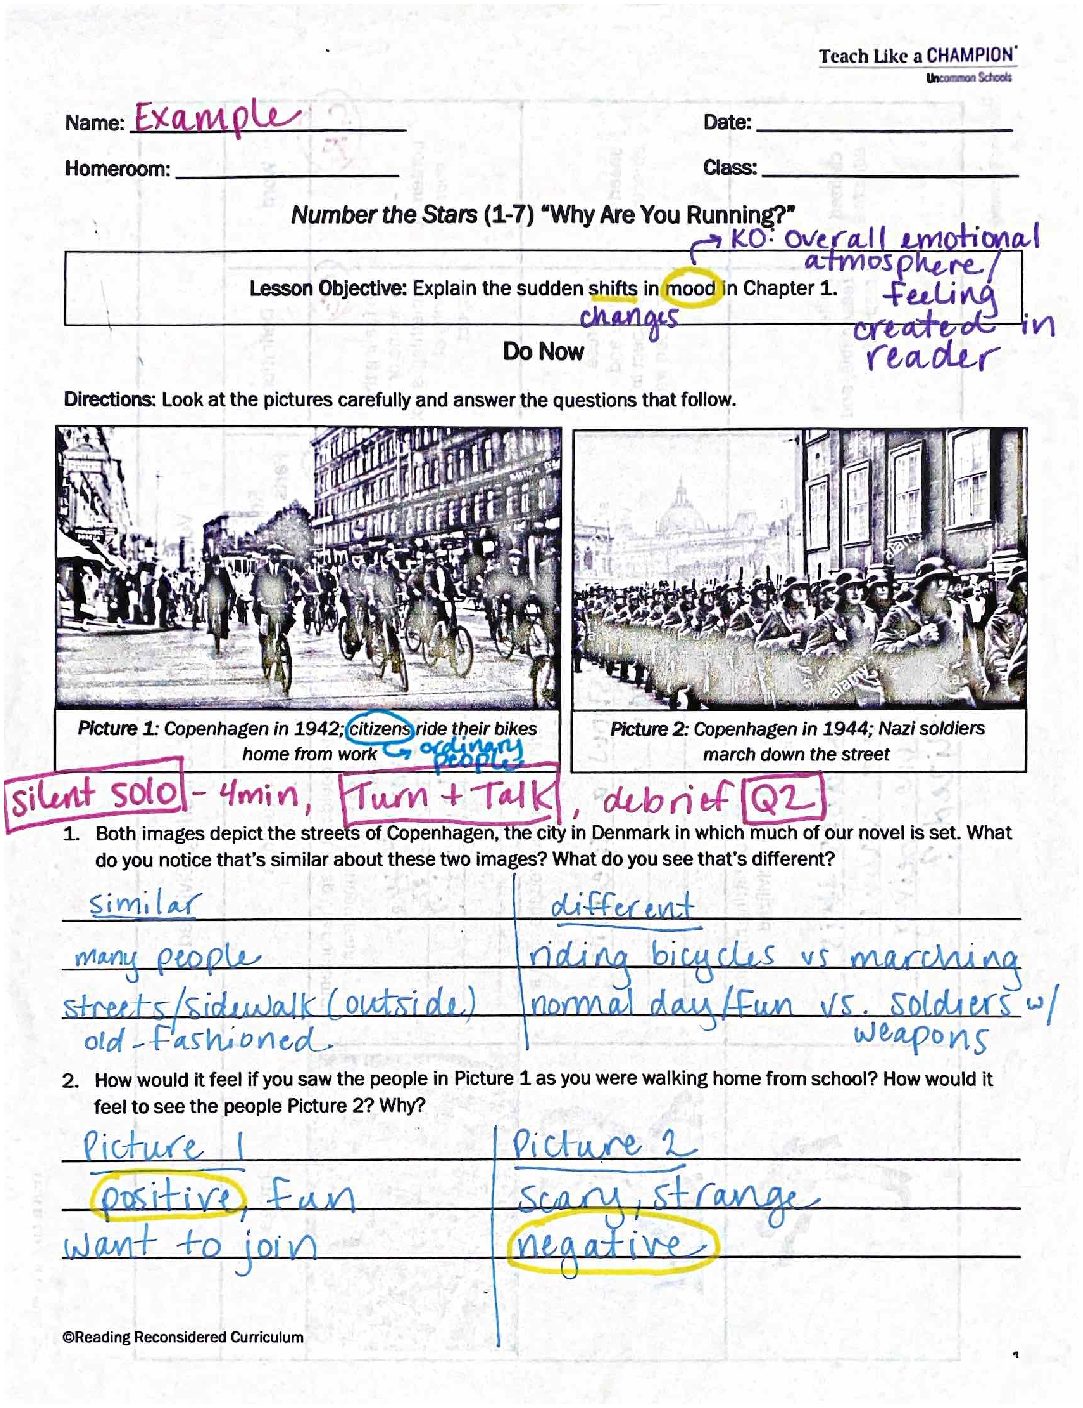 Teach Like a CHAMPION
Uncommon Schools
Name: Example
Date:
Homeroom:
Class:
Number the Stars (1-7) "Why Are You Running?"
→ KO: Overall emotional
atmosphere/
feeling
created in
reader
Lesson Objective: Explain the sudden shifts in mood in Chapter 1.
changes
Do Now
Directions: Look at the pictures carefully and answer the questions that follow.
alamy
alamy
Picture 1: Copenhagen in 1942; citizens ride their bikes
home from work
→ ordinary
people
Picture 2: Copenhagen in 1944; Nazi soldiers
march down the street
Silent solo - 4min, Turn + Talk, debrief Q2
1. Both images depict the streets of Copenhagen, the city in Denmark in which much of our novel is set. What
do you notice that's similar about these two images? What do you see that's different?
similar
many people
streets/sidewalk (outside)
old-fashioned.
different
riding bicycles vs marching
normal day/fun vs. soldiers w/
weapons
2. How would it feel if you saw the people in Picture 1 as you were walking home from school? How would it
feel to see the people Picture 2? Why?
Picture 1
positive, fun
want to join
Picture 2
scary, strange
negative
©Reading Reconsidered Curriculum
1